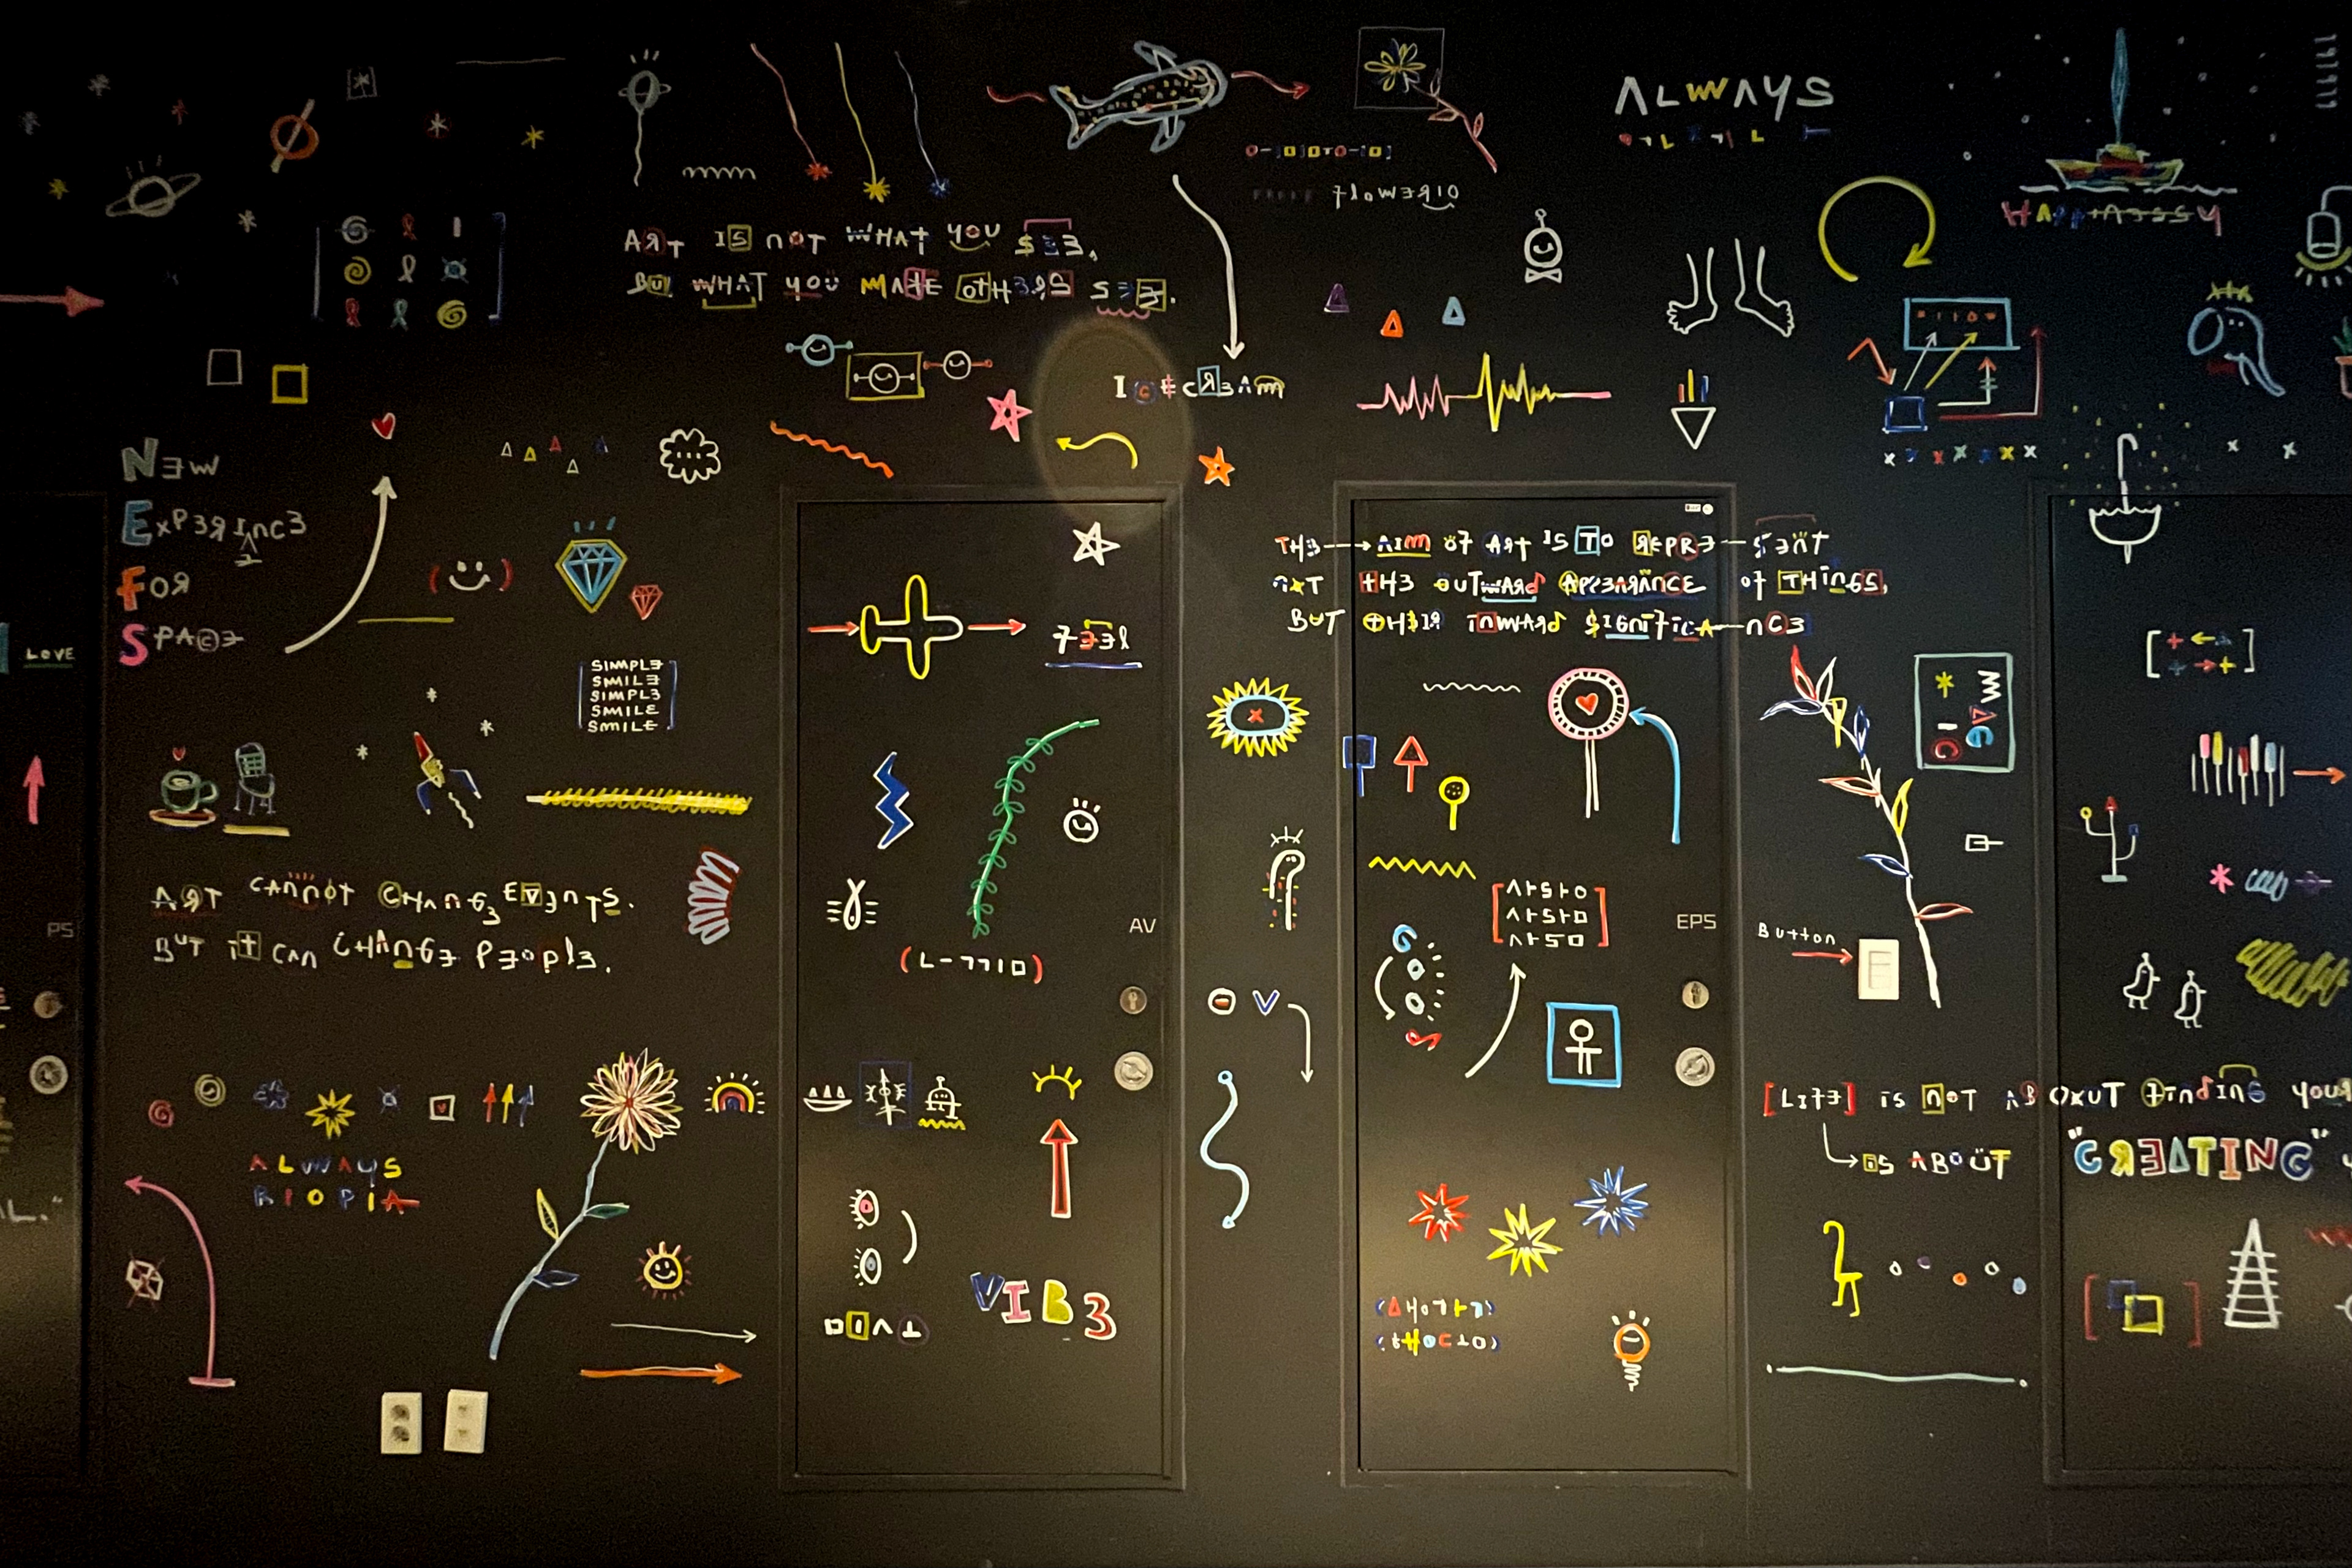 ALWAYS
flowerio
HAppinessy
ART IS nOT WHAT YOU $EE,
BUT WHAT YOU MAKE OTHERS SEE.
ICECREAM
NEW
ExPERInCE
FOR
SPACE
LOVE
(L-7710)
SIMPLE
SMILE
SIMPLE
SMILE
SMILE
FEEl
THE AIM OF ART IS TO REPRE-SEnT
nOT THE OUTWARd APPEARAnCE OF THInGS,
BUT THEIR InWARd $IGnIFICA-nCE
MAC
ART CAnnOT CHAnGE EVEnTS.
BUT iT CAn CHAnGE PEOPlE.
PS
AV
EPS
Button
[LIFE] iS nOT ABOUT FindinG YOUR
iS ABOUT "CREATING"
ALWAYS
BIOPIA
VIBE
AL."